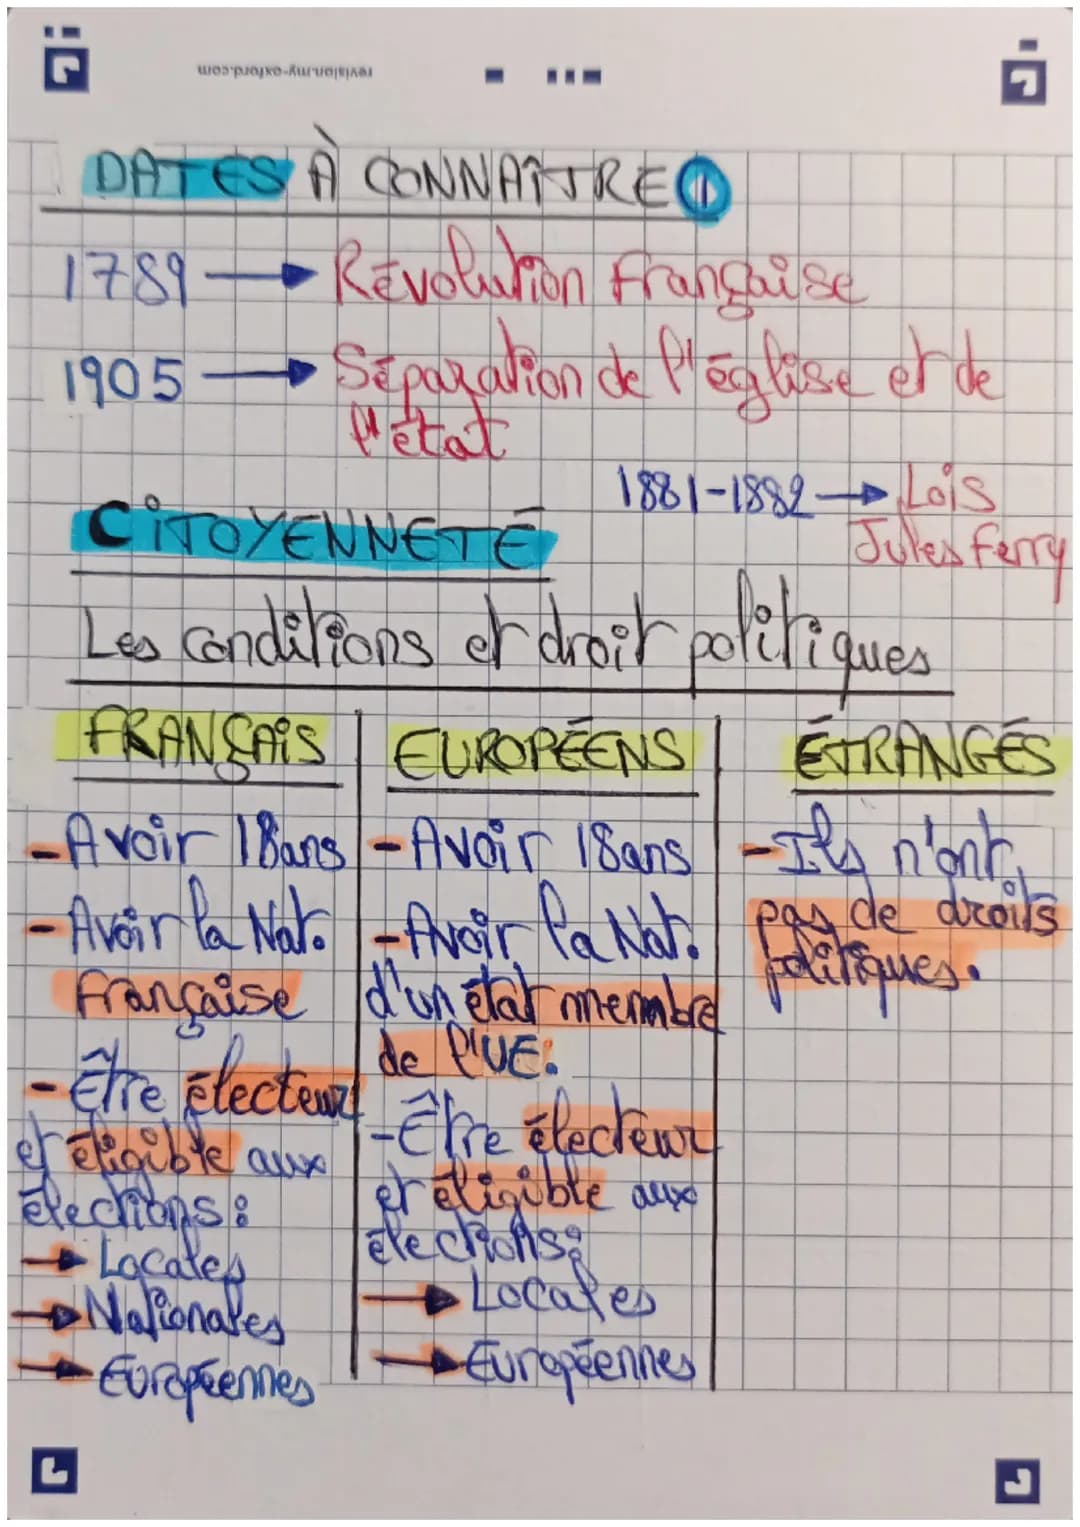 revision.my-oxford.com
DATES À CONNAÎTRE 1
1789 → Révolution française
1905 → Séparation de l'église et de
l'état
1881-1882 → Lois
Jules Ferry
CITOYENNETÉ
Les conditions et droit politiques
FRANÇAIS
- Avoir 18ans
- Avoir la Nat.
française
- Être électeur
et éligible aux
élections :
→ Locales
→ Nationales
→ Européennes
EUROPÉENS
- Avoir 18ans
- Avoir la Nat.
d'un état membre
de l'UE.
- Être électeur
et éligible aux
élections :
→ Locales
→ Européennes
ÉTRANGÉS
- Ils n'ont
pas de droits
politiques.